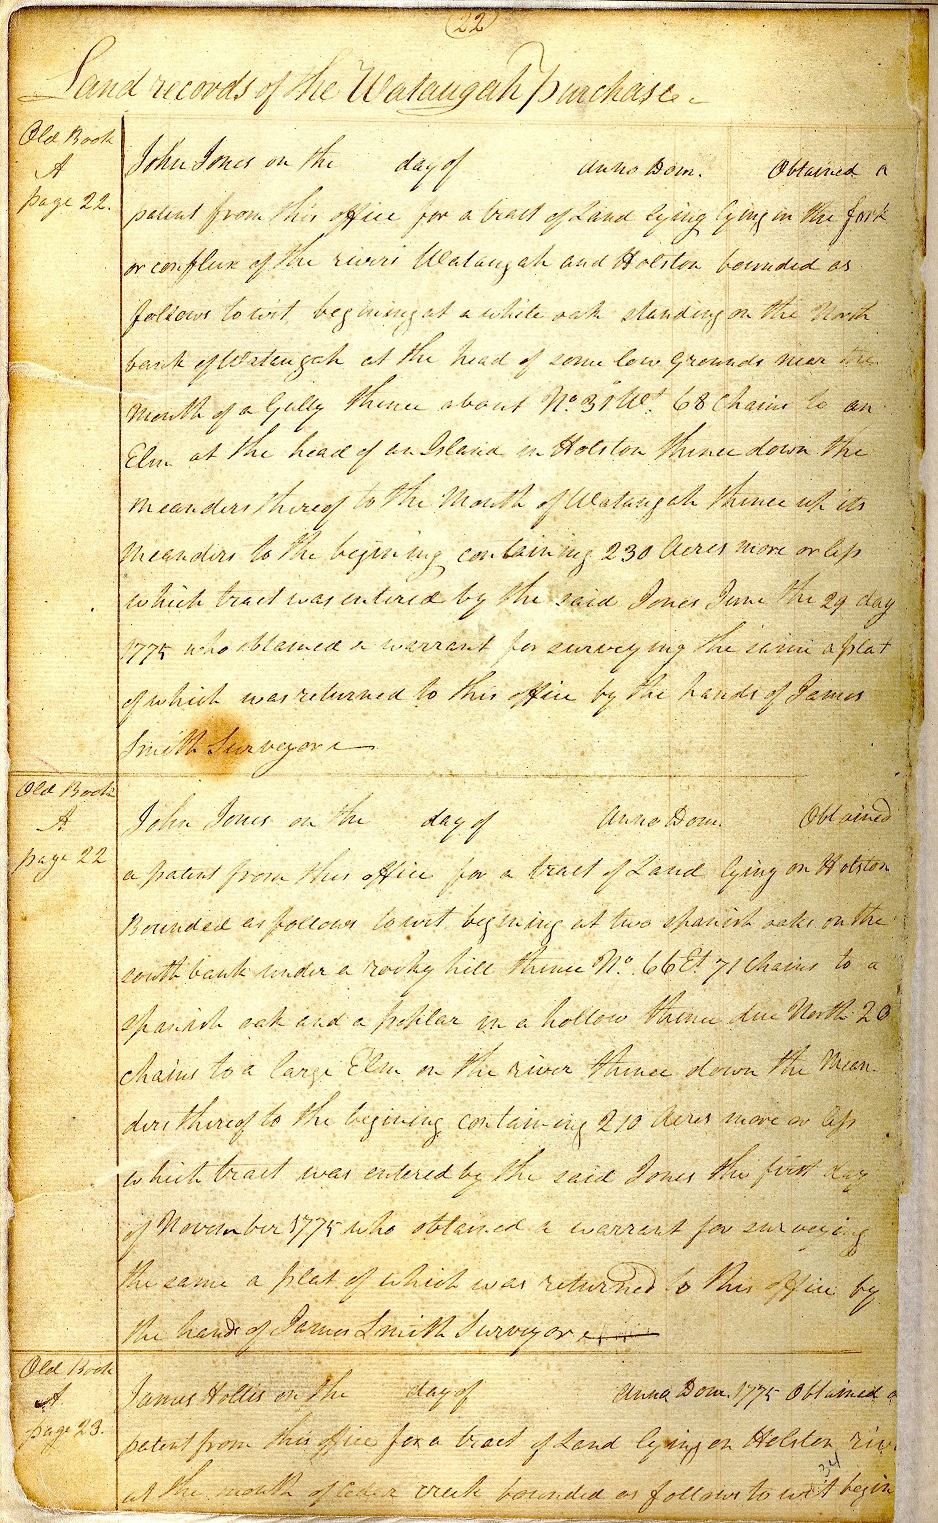 (22)
Land records of the Wataugah purchase
Old Book
A
page 22.
John Jones on the day of Anno Dom. Obtained a
patent from this office for a tract of Land lying lying in the fork
or conflux of the rivers Wataugah and Holston bounded as
follows to wit, begining at a white oak standing on the North
bank of Wataugah at the head of some low Grounds near the
Mouth of a Gully thence about No. 31 Wt. 68 Chains to an
Elm at the head of an Island in Holston thence down the
meanders thereof to the Mouth of Wataugah thence up its
meanders to the begining containing 230 Acres more or less
which tract was entered by the said Jones June the 29 day
1775 who obtained a warrant for surveying the same a plat
of which was returned to this office by the hands of James
Smith Surveyor
Old Book
A
page 22
John Jones on the day of Anno Dom. Obtained
a patent from this office for a tract of Land lying on Holston
Bounded as follows to wit begining at two spanish oaks on the
south bank under a rocky hill thence No. 66 Et 71 chains to a
spanish oak and a poplar in a hollow thence due North 20
chains to a large Elm on the river thence down the Mean-
ders thereof to the begining containing 210 Acres more or less
which tract was entered by the said Jones the first day
of November 1775 who obtained a warrant for surveying
the same a plat of which was returned to this office by
the hands of James Smith Surveyor
Old Book
A
page 23.
James Hollis on the day of Anno Dom. 1775 Obtained a
patent from this office for a tract of Land lying on Holston riv
at the mouth of creek bounded as follows to wit begin
34